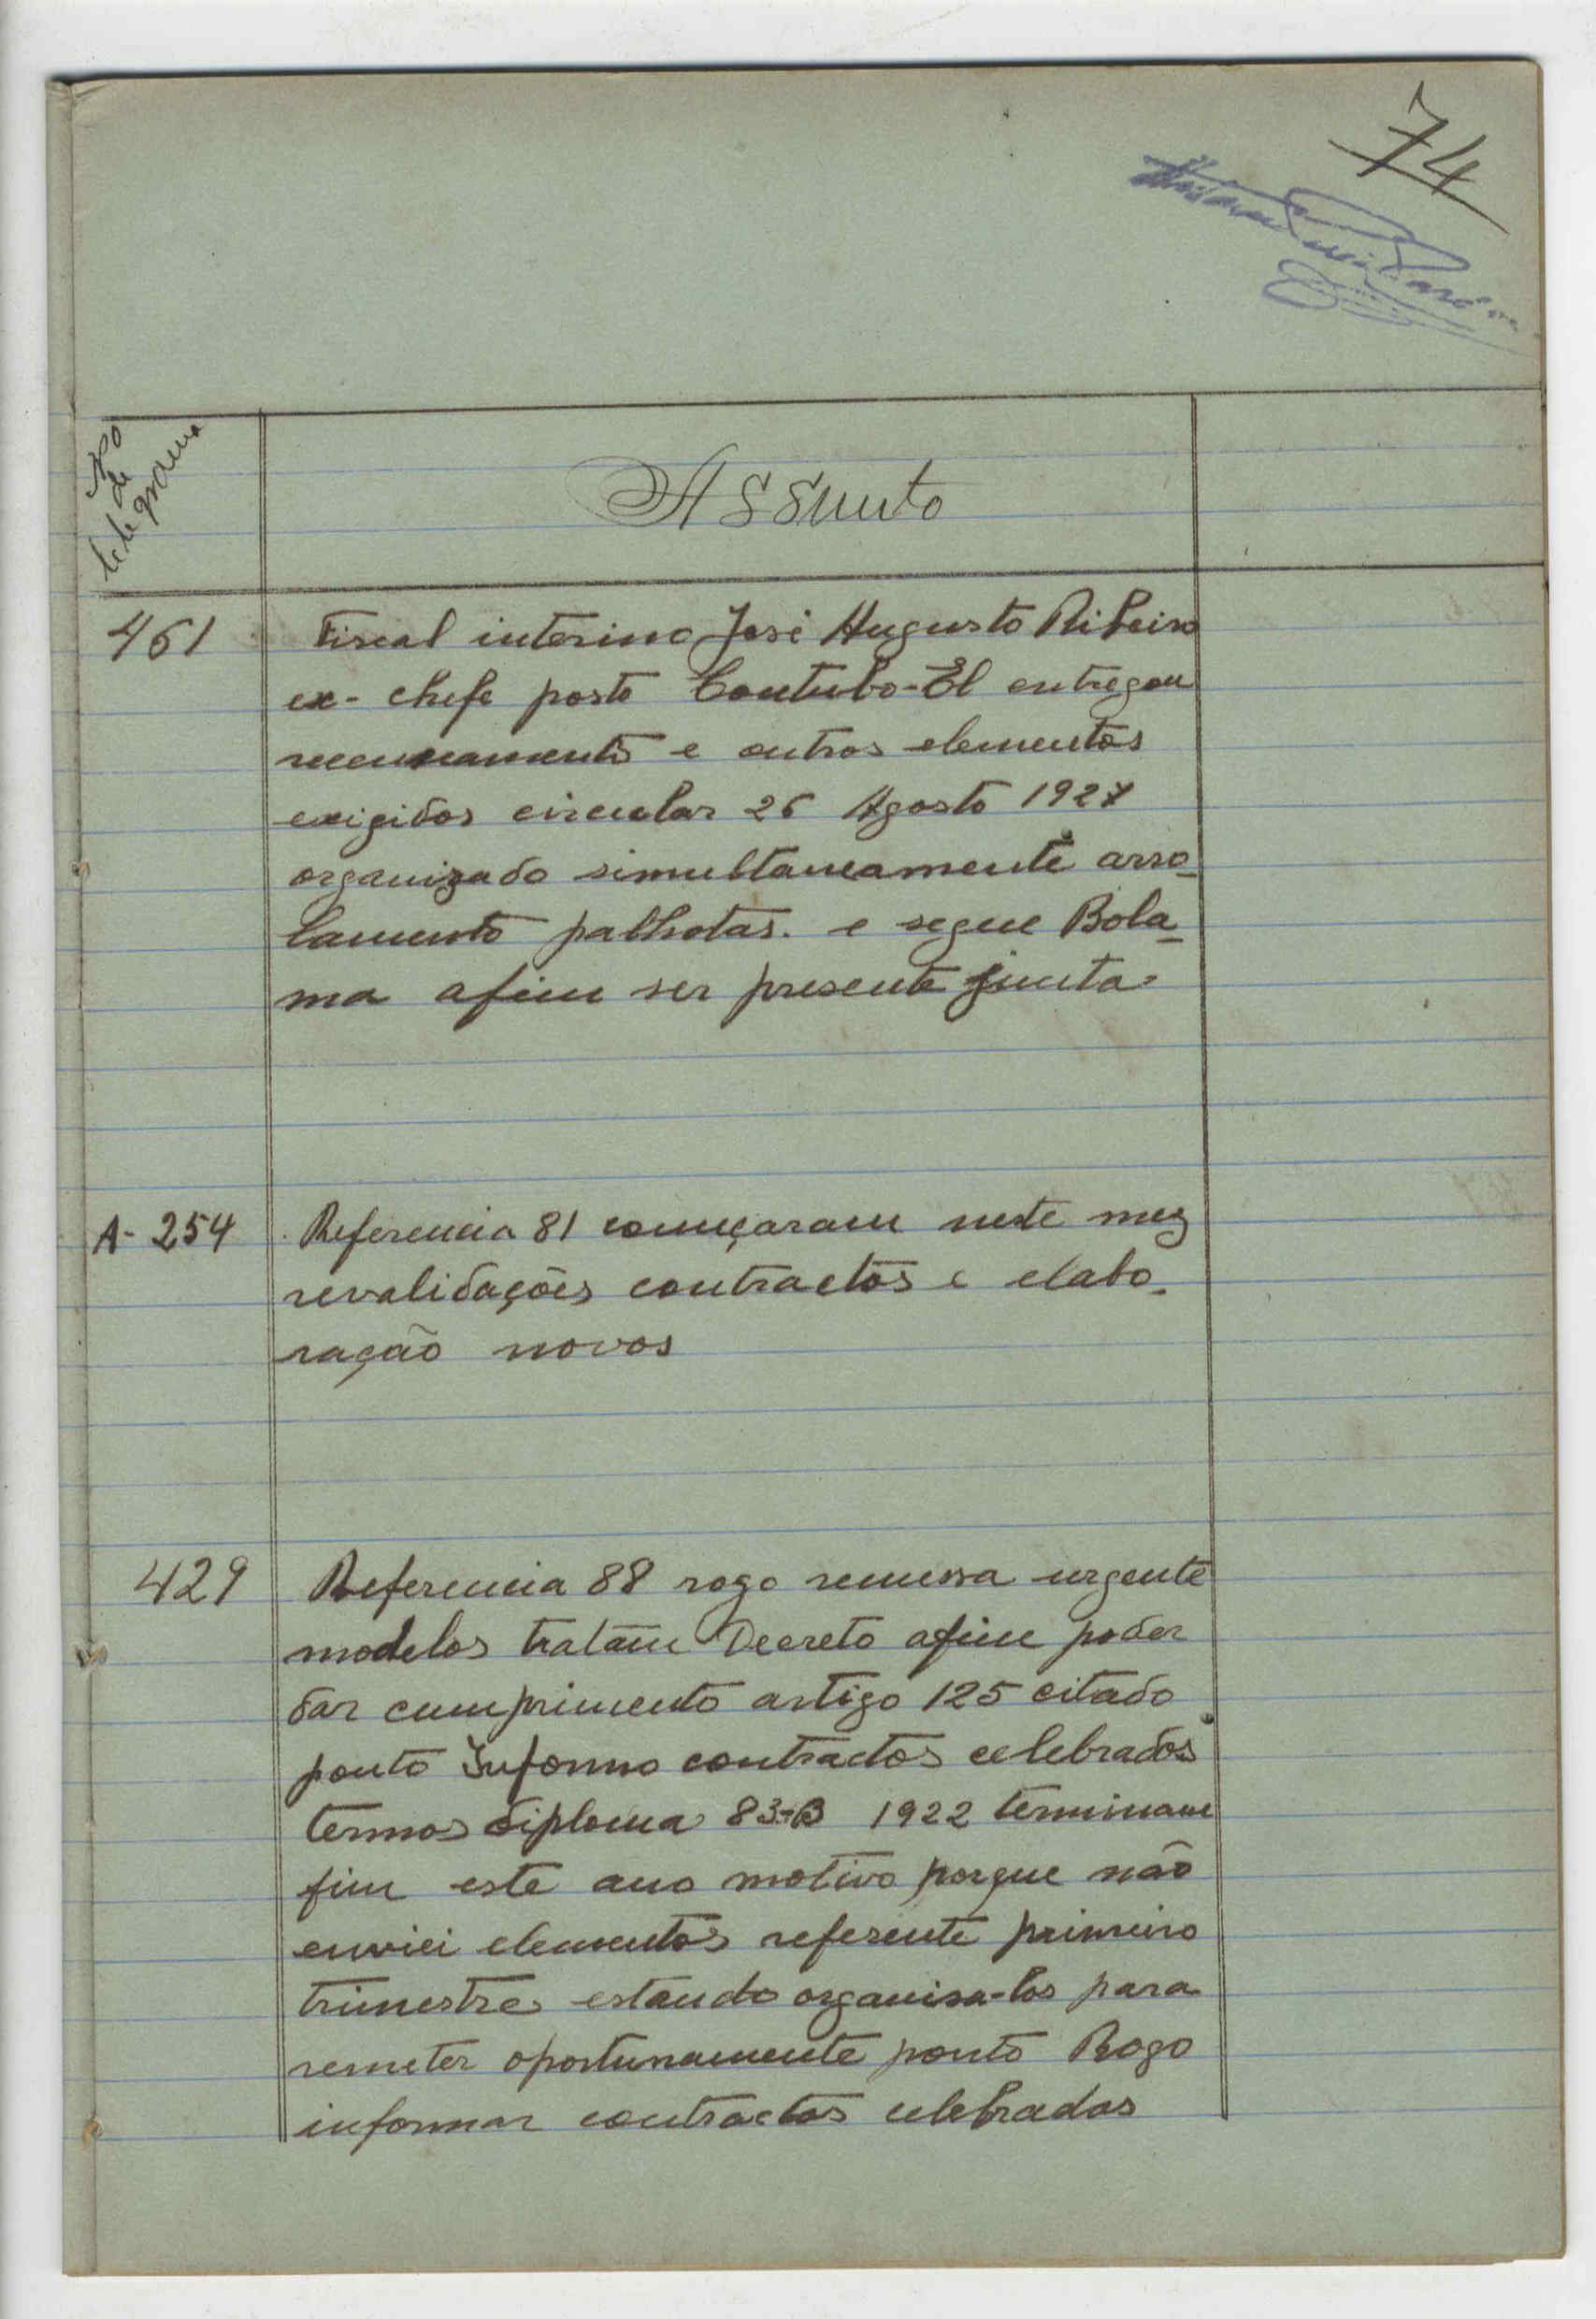 74
Nº
de
telegrama
Assunto
461
Fiscal interino José Augusto Ribeiro
ex-chefe posto Contubo-El entregou
recenseamento e outros elementos
exigidos circular 26 Agosto 1927
organizado simultaneamente arro-
lamento palhotas. e segue Bola-
ma afim ser presente junta
A-254
Referencia 81 começaram neste mez
revalidações contractos e elabo-
ração novos
429
Referencia 88 rogo remessa urgente
modelos tratam Decreto afim poder
dar cumprimento artigo 125 citado
ponto Informo contractos celebrados
termos diploma 83-B 1922 terminam
fim este ano motivo porque não
enviei elementos referente primeiro
trimestre estando organisa-los para
remeter oportunamente ponto Rogo
informar contractos celebrados